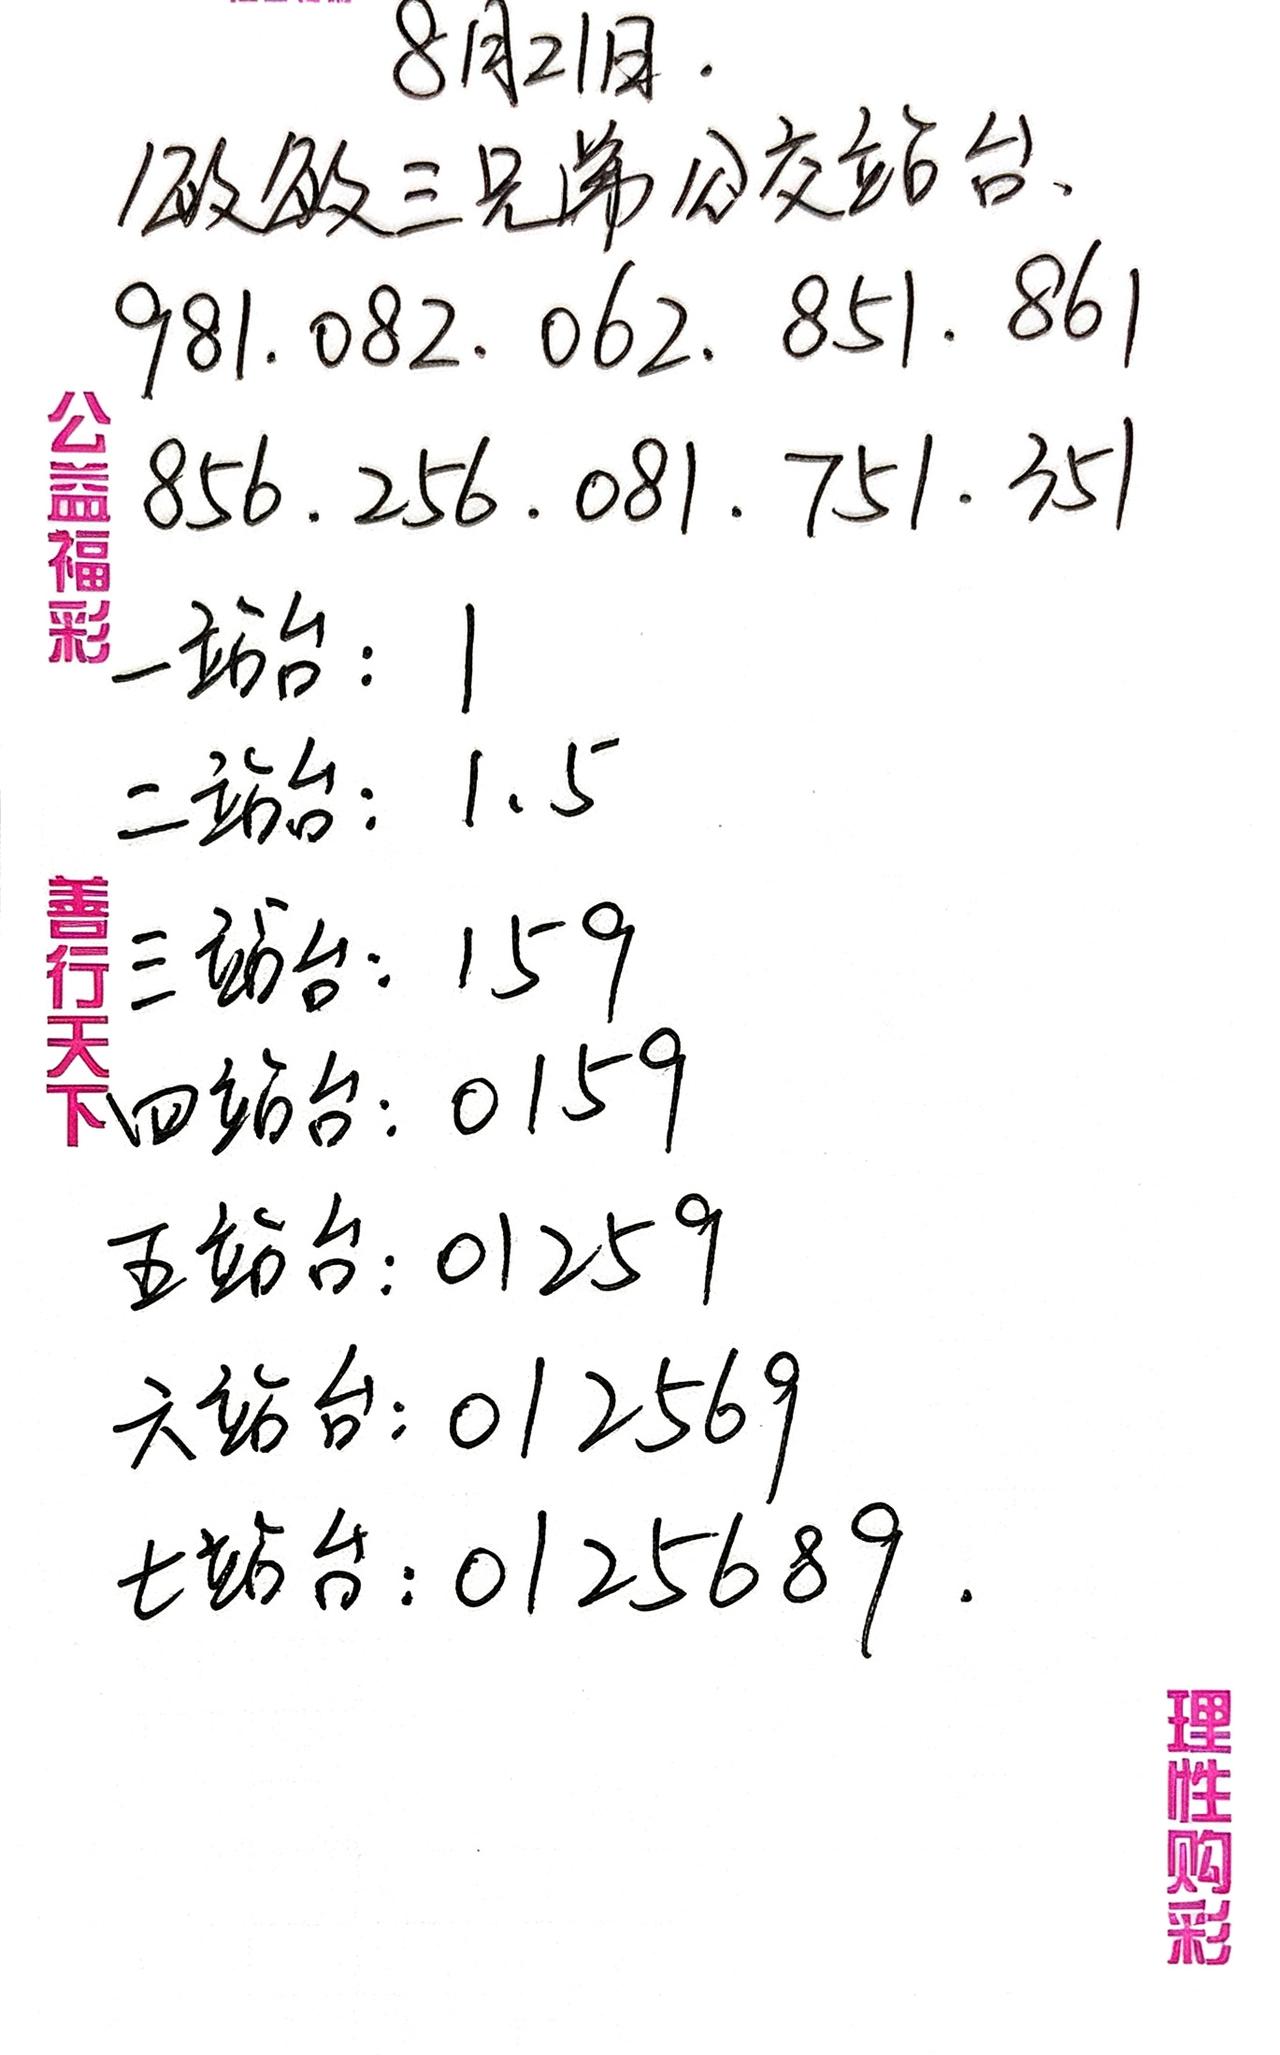 8月21日.
敏敏三兄弟公交站台、
981.082.062.851.861
856.256.081.751.351
一站台: 1
二站台: 1.5
三站台: 159
四站台: 0159
五站台: 01259
六站台: 012569
七站台: 0125689.
公益福彩
善行天下
理性购彩